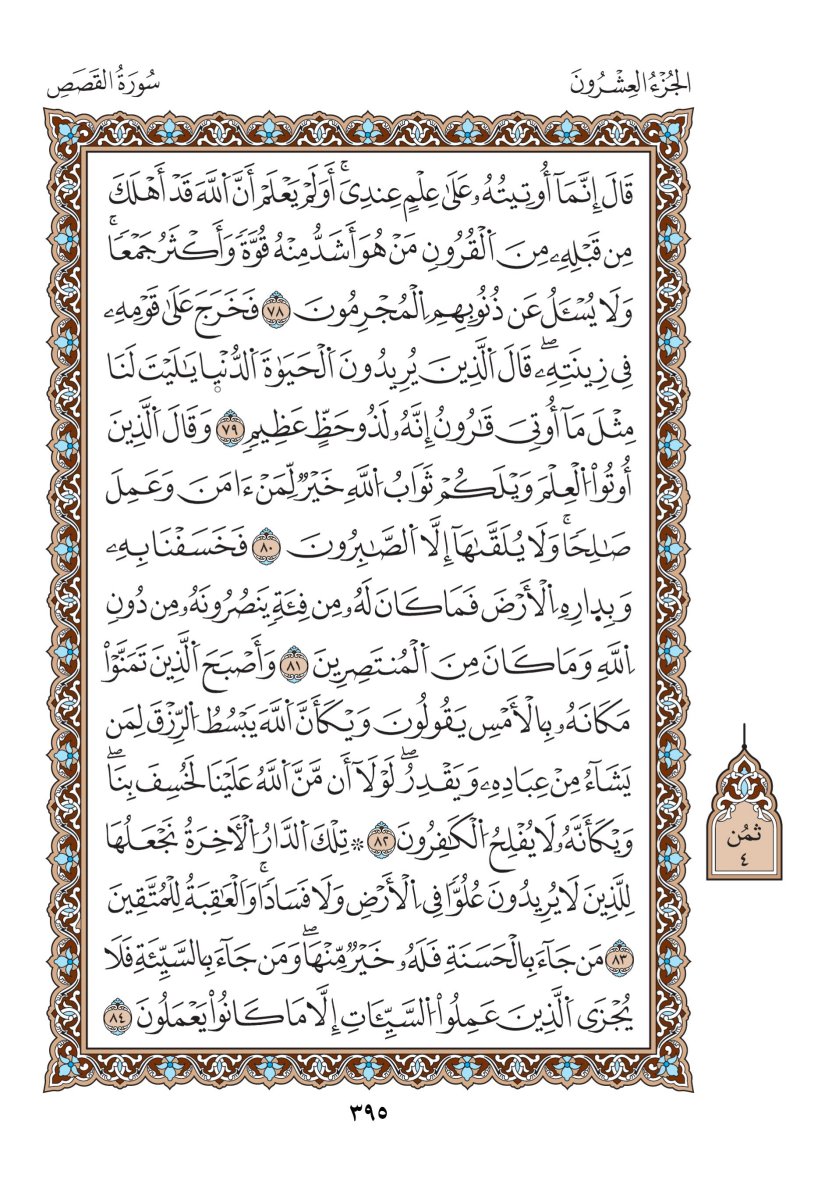 الجُزْءُ العِشْرُونَ
سُورَةُ القَصَصِ
قَالَ إِنَّمَآ أُوتِيتُهُۥ عَلَىٰ عِلۡمٍ عِندِيَۚ أَوَلَمۡ يَعۡلَمۡ أَنَّ اَ۬للَّهَ قَدۡ أَهۡلَكَ
مِن قَبۡلِهِۦ مِنَ اَ۬لۡقُرُونِ مَنۡ هُوَ أَشَدُّ مِنۡهُ قُوَّةٗ وَأَكۡثَرُ جَمۡعٗاۚ
وَلَا يُسۡـَٔلُ عَن ذُنُوبِهِمِ اِ۬لۡمُجۡرِمُونَ ٧٨ فَخَرَجَ عَلَىٰ قَوۡمِهِۦ
فِي زِينَتِهِۦۖ قَالَ اَ۬لَّذِينَ يُرِيدُونَ اَ۬لۡحَيَوٰةَ اَ۬لدُّنۡيۭا يَٰلَيۡتَ لَنَا
مِثۡلَ مَآ أُوتِيَ قَٰرُونُ إِنَّهُۥ لَذُو حَظٍّ عَظِيمٖ ٧٩ وَقَالَ اَ۬لَّذِينَ
أُوتُواْ اُ۬لۡعِلۡمَ وَيۡلَكُمۡ ثَوَابُ اُ۬للَّهِ خَيۡرٞ لِّمَنۡ ءَامَنَ وَعَمِلَ
صَٰلِحٗاۚ وَلَا يُلَقَّىٰهَآ إِلَّا اَ۬لصَّٰبِرُونَ ٨٠ فَخَسَفۡنَا بِهِۦ
وَبِدِارِهِ اِ۬لۡأَرۡضَ فَمَا كَانَ لَهُۥ مِن فِئَةٖ يَنصُرُونَهُۥ مِن دُونِ
اِ۬للَّهِ وَمَا كَانَ مِنَ اَ۬لۡمُنتَصِرِينَ ٨١ وَأَصۡبَحَ اَ۬لَّذِينَ تَمَنَّوۡاْ
مَكَانَهُۥ بِالۡأَمۡسِ يَقُولُونَ وَيۡكَأَنَّ اَ۬للَّهَ يَبۡسُطُ اُ۬لرِّزۡقَ لِمَن
يَشَآءُ مِنۡ عِبَادِهِۦ وَيَقۡدِرُۖ لَوۡلَآ أَن مَّنَّ اَ۬للَّهُ عَلَيۡنَا لَخُسِفَ بِنَاۖ
وَيۡكَأَنَّهُۥ لَا يُفۡلِحُ اُ۬لۡكَٰفِرُونَ ٨٢ ۞ تِلۡكَ اَ۬لدَّارُ اُ۬لۡأٓخِرَةُ نَجۡعَلُهَا
لِلَّذِينَ لَا يُرِيدُونَ عُلُوّٗا فِي اِ۬لۡأَرۡضِ وَلَا فَسَادٗاۚ وَالۡعَٰقِبَةُ لِلۡمُتَّقِينَ
٨٣ مَن جَآءَ بِالۡحَسَنَةِ فَلَهُۥ خَيۡرٞ مِّنۡهَاۖ وَمَن جَآءَ بِالسَّيِّئَةِ فَلَا
يُجۡزَى اَ۬لَّذِينَ عَمِلُواْ اُ۬لسَّيِّـَٔاتِ إِلَّا مَا كَانُواْ يَعۡمَلُونَ ٨٤
ثمُن
٤
٣٩٥